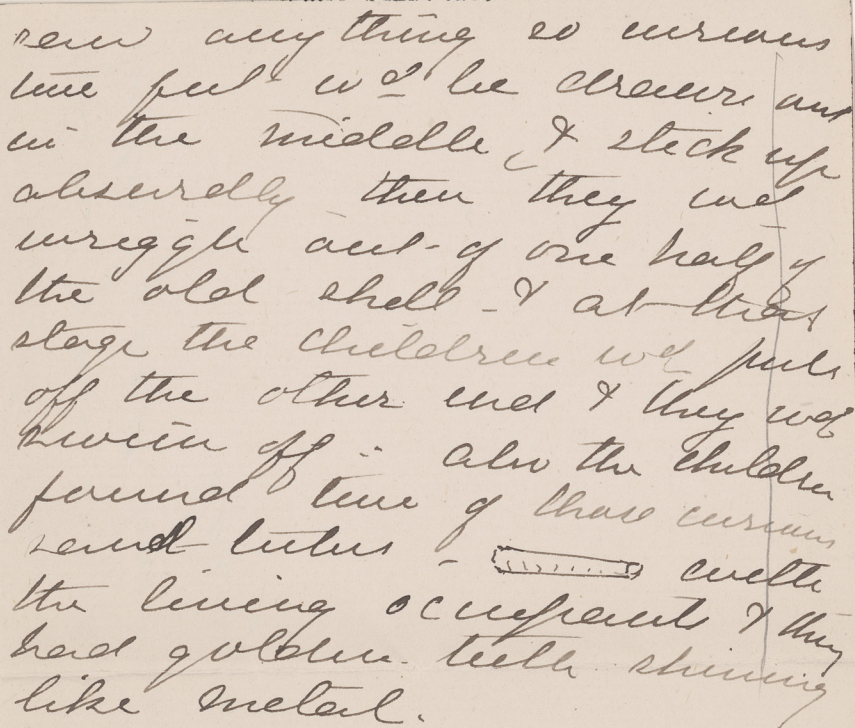 saw anything so curious
the feet wd be drawn out
in the middle, & stick up
absurdly then they wd
wriggle out of one half of
the old shell - & at that
stage the children wd pull
off the other end & they wd
swim off - also the children
found two of those curious
sand tubes - with
the living occupants & they
had golden teeth shining
like metal.